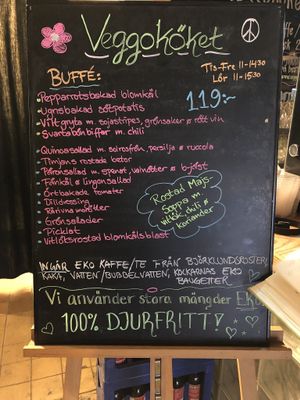 Veggoköket
BUFFÉ:
Tis-Fre 11-1430
Lör 11-1530
119:-
Pepparrotsbakad blomkål
Ugnsbakad sötpotatis
Viltgryta m. sojastrips, grönsaker & rött vin
Svartabönbiffar m. chili
Quinoasallad m. saltrosfrön, persilja & ruccola
Timjans rostade betor
Päronsallad m. spenat, valnötter &
Fänkål & lingonsallad
Örtbakade tomater
Dilldressing
Rårivna morötter
Grönsallader
Picklat
Vitlöksrostad blomkålsblast
Rostad Majs-
Soppa m.
vitlök, chili &
koriander
INGÅR EKO KAFFE/TE FRÅN BJÖRKLUNDSROSTERI
KARV, VATTEN/BUBBELVATTEN, KOCKARNAS EKO
BAUGETTER
Vi använder stora mängder EKO
100% DJURFRITT!